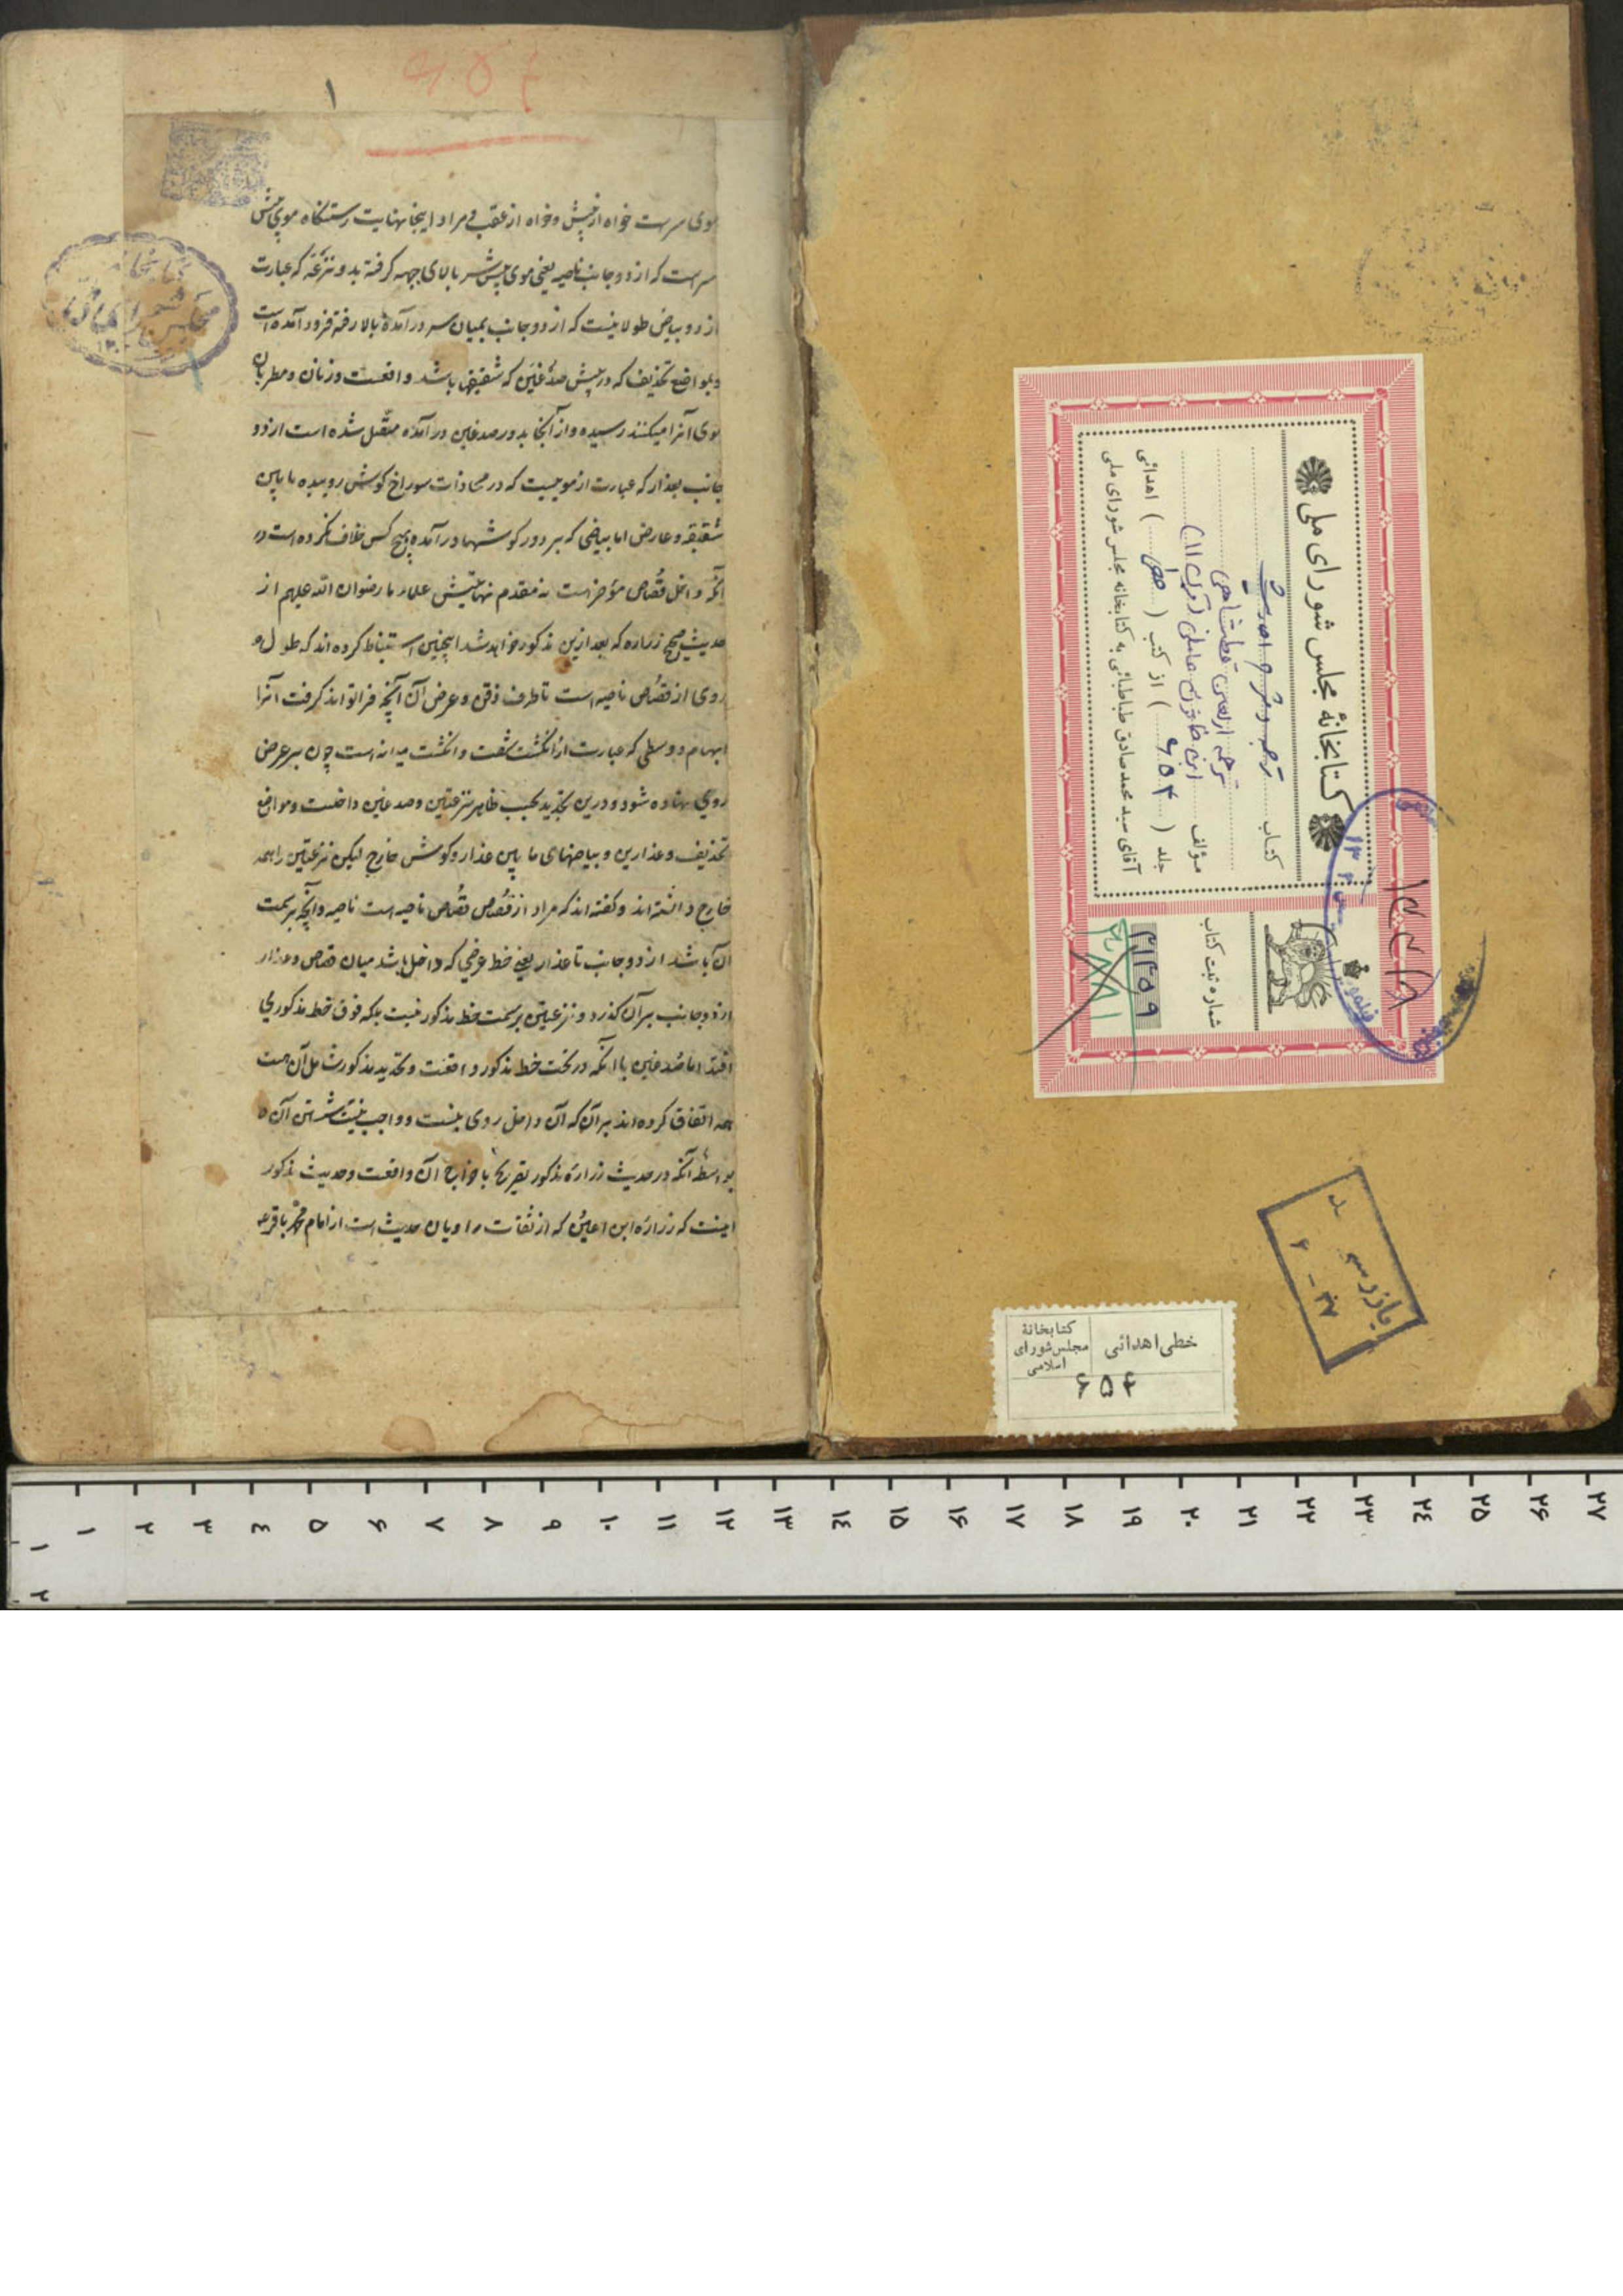 ۱
موی سرست خواه از پیش و خواه از عقب و مراد اینجا نهایت رستنگاه موی پیش
سرست که از دو جانب ناصیه یعنی موی پیش سر بالای جبهه کرفته بدو نزعه که عبارت
از دو بیاض طولانیست که از دو جانب بمیان سر در آمده بالا رفته فرود آمده است
و بمواضع تحذیف که در پیش صدغین که شقیقها باشد واقعست و زنان و مطربان
موی آنرا میکنند رسیده و از آنجا بدو صدغین در آمده متصل شده است از دو
جانب بعذار که عبارت از موییست که در محاذات سوراخ کوش روییده ما بین
شقیقه و عارض اما بیاضی که بر دور کوشها در آمده هیچ کس خلاف نکرده است در
آنکه داخل قصاص مؤخر است نه مقدم علماء ما رضوان الله علیهم از
حدیث صحیح زراره که بعد ازین مذکور خواهد شد اینچنین استنباط کرده اند که طول
روی از قصاص ناصیه است تا طرف ذقن و عرض آن آنچه فرا تواند کرفت آنرا
ابهام و وسطی که عبارت از انکشت شصت و انکشت میانه است چون بر عرض
روی نهاده شود و درین تحدید بحسب ظاهر نزعتین و صدغین داخلست و مواضع
تحذیف و عذارین و بیاضهای ما بین عذار و کوش خارج لیکن نزعتین را همه
خارج دانسته اند و کفته اند که مراد از قصاص قصاص ناصیه است ناصیه و آنچه بر سمت
آن باشد از دو جانب تا عذار یعنی خط عرضی که داخل باشد میان قصاص و عذار
از دو جانب بر آن کذرد و نزعتین بر سمت خط مذکور نیست بلکه فوق خط مذکور می
افتد اما صدغین با آنکه در تحت خط مذکور واقعست و تحدید مذکور شامل آن هست
همه اتفاق کرده اند بر آن که آن داخل روی نیست و واجب نیست شستن آن
بواسطه آنکه در حدیث زراره مذکور تصریح با خراج آن واقعست و حدیث مذکور
اینست که زراره ابن اعین که از ثقات راویان حدیث است از امام محمد باقر
کتابخانهٔ مجلس شورای ملی
کتاب ترجمه
ترجمه اربعین قطبشاهی
مؤلف ابن خاتون عاملی
جلد ( ۶۵۴ ) از کتب ( خطی ) اهدائی
آقای سید محمد صادق طباطبائی به کتابخانه مجلس شورای ملی
شماره ثبت کتاب
بازرسی
۶ - ۳۷
خطی اهدائی
کتابخانهٔ
مجلس شورای
اسلامی
۶۵۴
۱ ۲ ۳ ٤ ۵ ۶ ۷ ۸ ۹ ۱۰ ۱۱ ۱۲ ۱۳ ۱٤ ۱۵ ۱۶ ۱۷ ۱۸ ۱۹ ۲۰ ۲۱ ۲۲ ۲۳ ۲٤ ۲۵ ۲۶ ۲۷
۱
۲